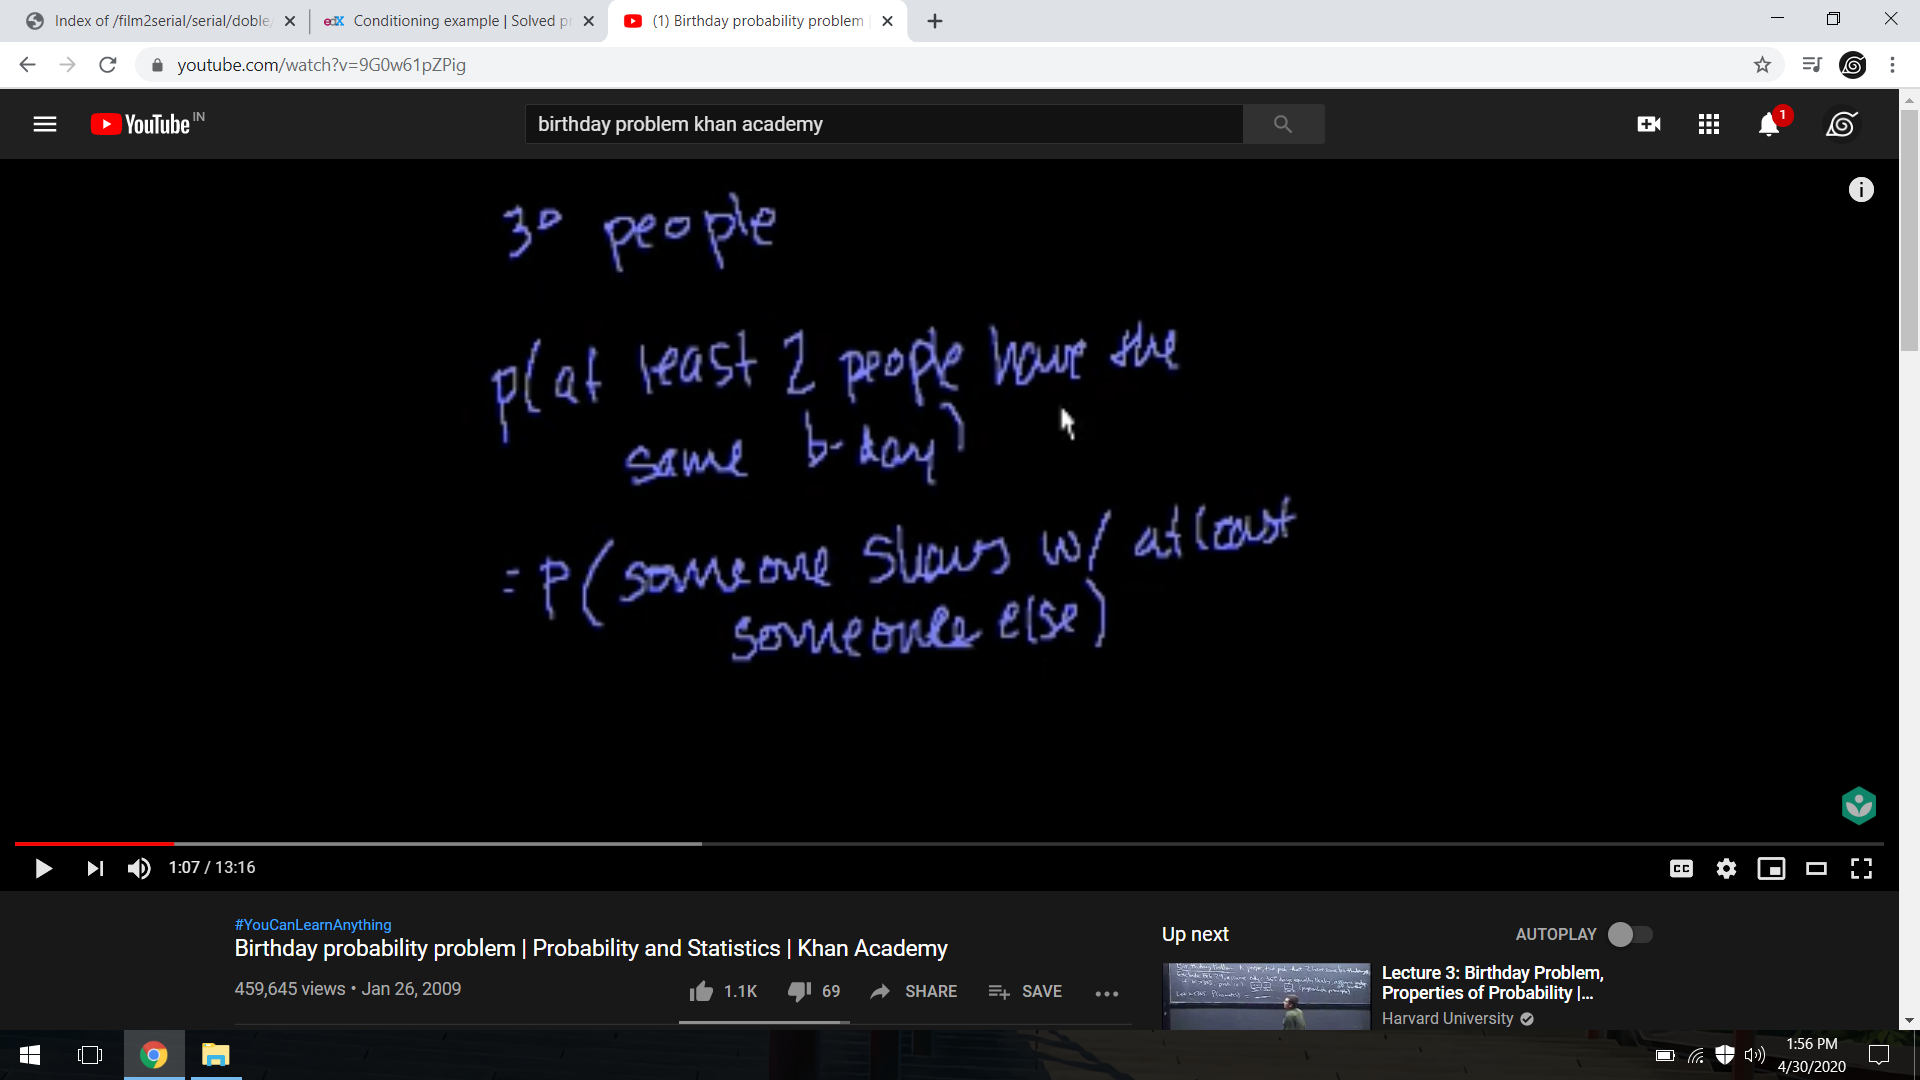 Index of /film2serial/serial/doble
edX Conditioning example | Solved pr
(1) Birthday probability problem
youtube.com/watch?v=9G0w61pZPig
YouTube IN
birthday problem khan academy
1
30 people
p(at least 2 people have the
same b-day)
= P(someone shares w/ at least
someone else)
1:07 / 13:16
CC
#YouCanLearnAnything
Birthday probability problem | Probability and Statistics | Khan Academy
459,645 views • Jan 26, 2009
1.1K
69
SHARE
SAVE
Up next
AUTOPLAY
Lecture 3: Birthday Problem,
Properties of Probability |...
Harvard University
1:56 PM
4/30/2020